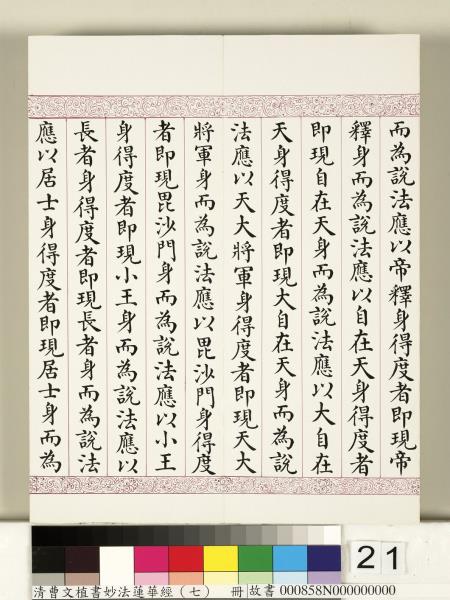 而為說法應以帝釋身得度者即現帝
釋身而為說法應以自在天身得度者
即現自在天身而為說法應以大自在
天身得度者即現大自在天身而為說
法應以天大將軍身得度者即現天大
將軍身而為說法應以毘沙門身得度
者即現毘沙門身而為說法應以小王
身得度者即現小王身而為說法應以
長者身得度者即現長者身而為說法
應以居士身得度者即現居士身而為
21
清曹文植書妙法蓮華經（七） 冊 故書 000858N000000000